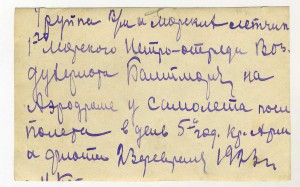 Группа В/м и морских летчик
1го Морского Истро-отряда Воз
духфлота Балтморя на
Аэродроме у самолета после
полета в день 5й год. Кр. Армии
и флота 23 февраля 1923 г